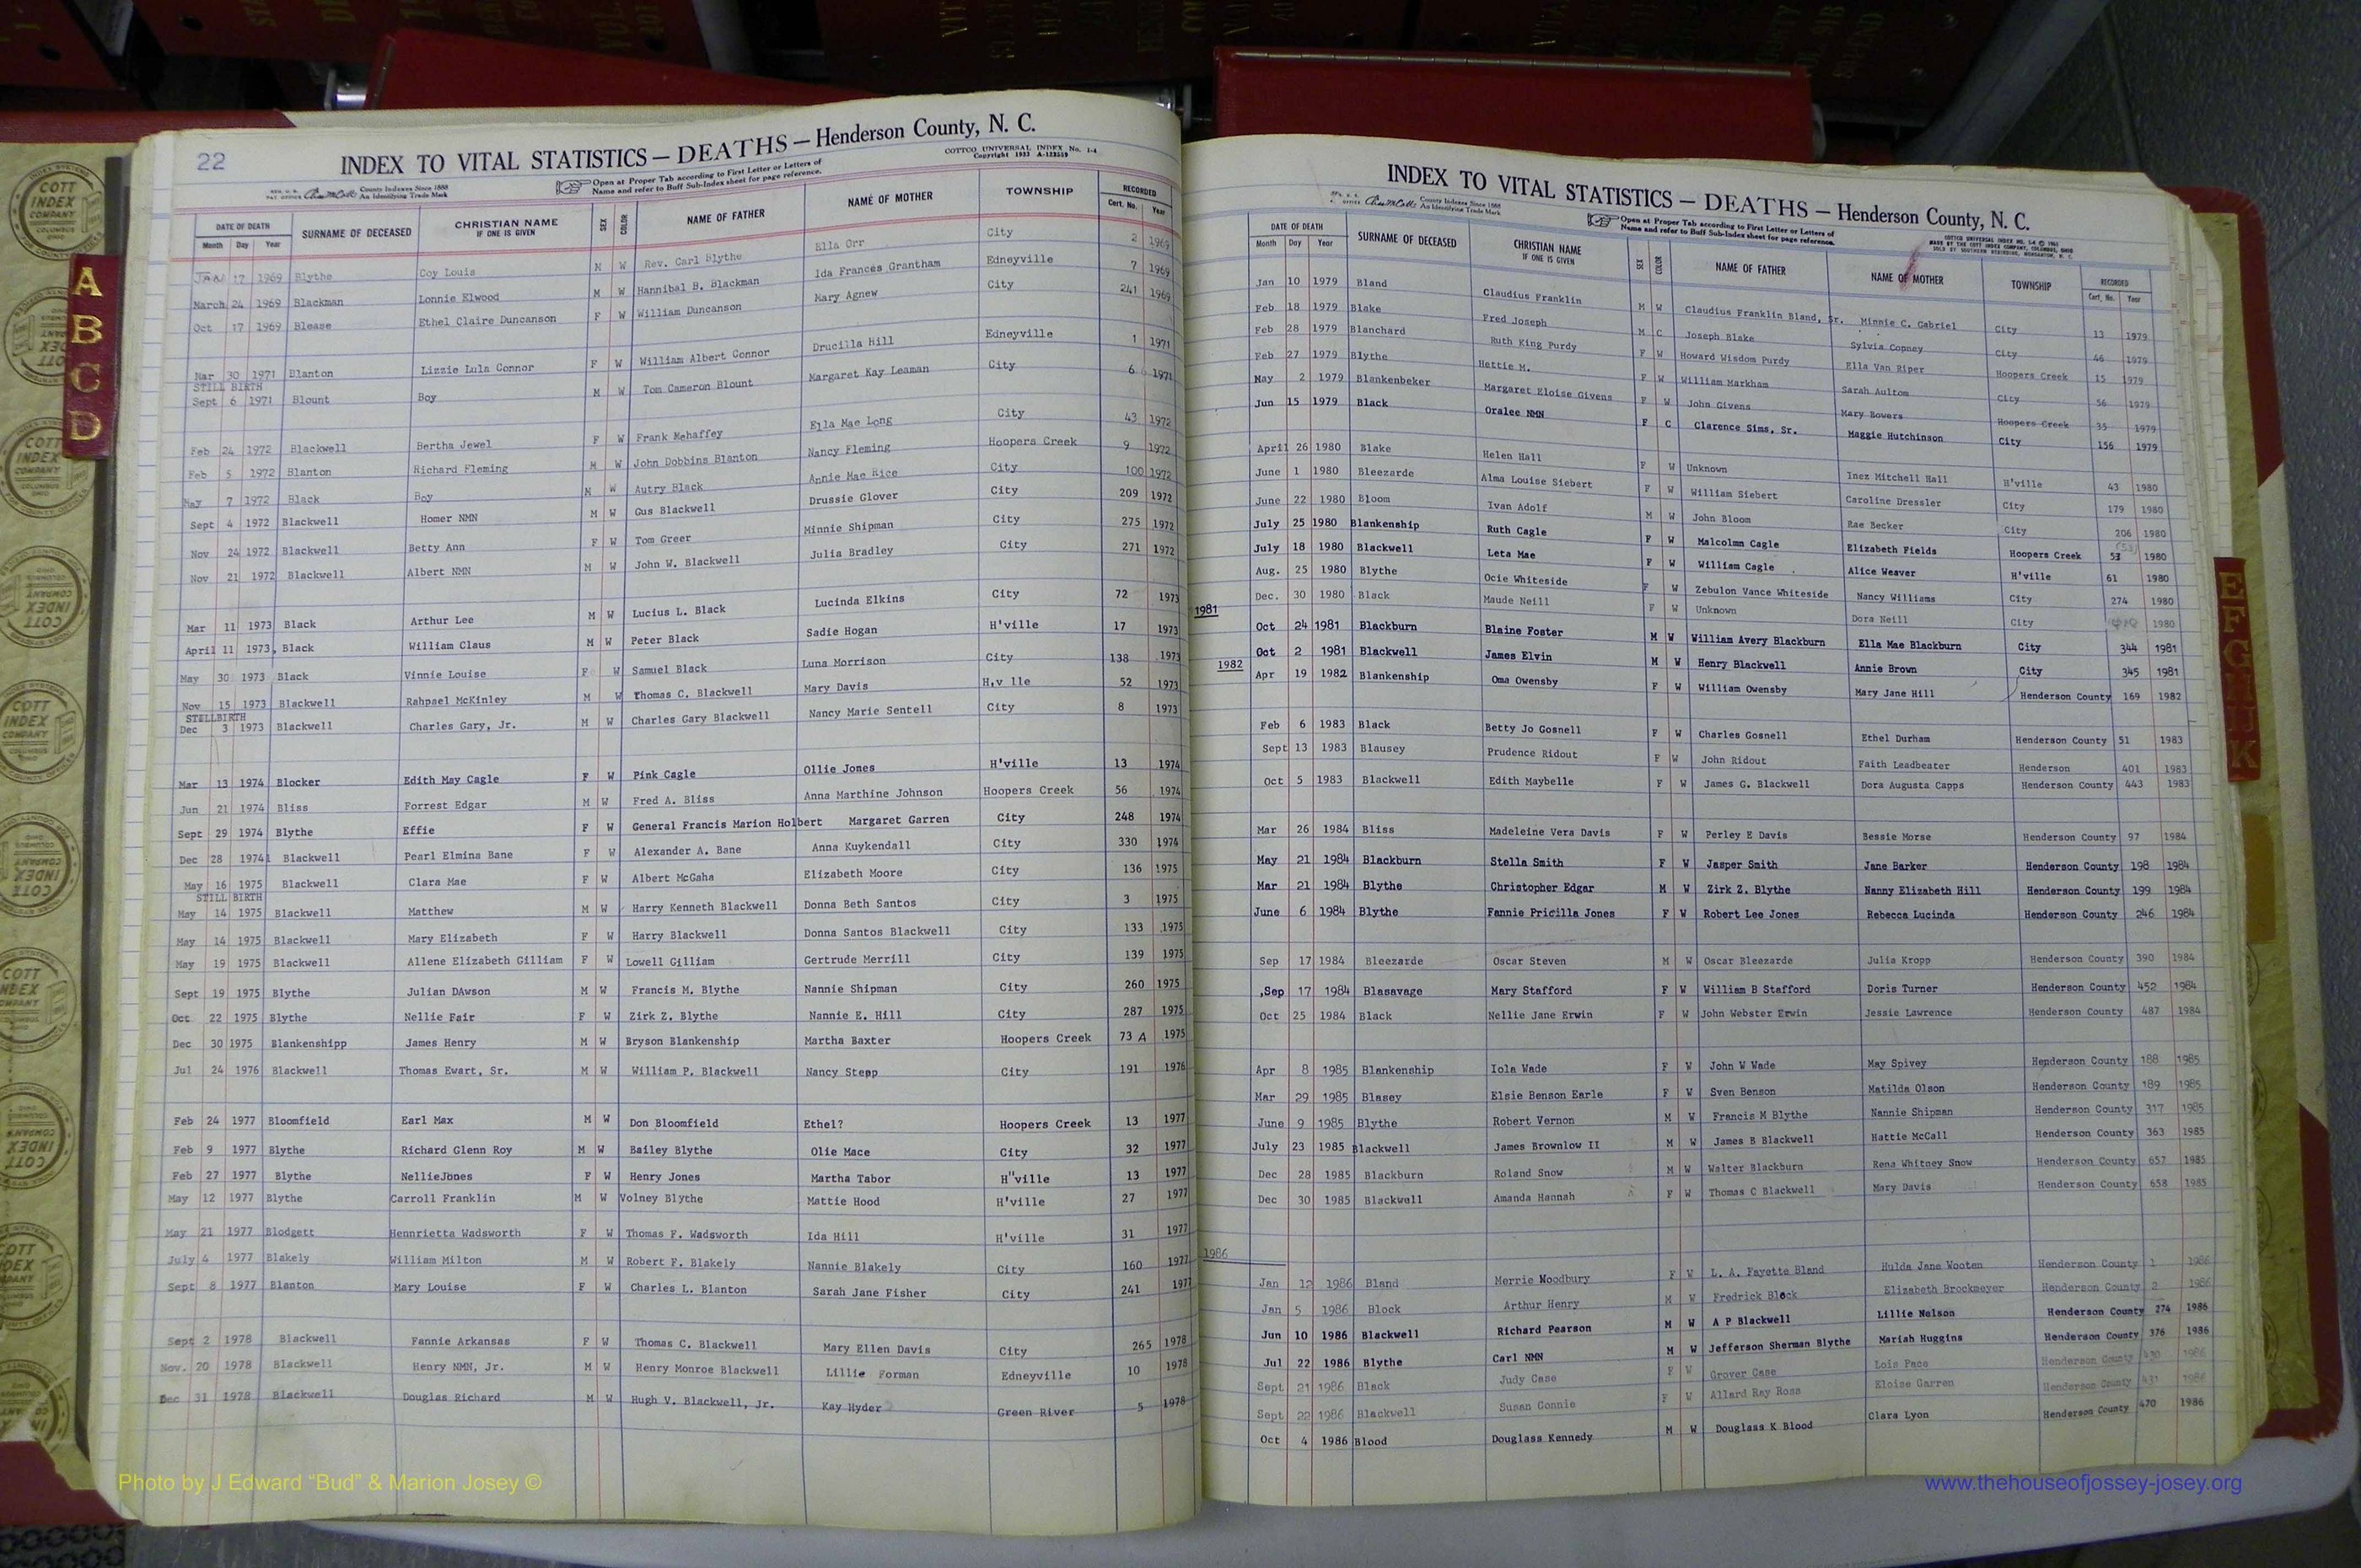 22
INDEX TO VITAL STATISTICS — DEATHS — Henderson County, N. C.
COTTCO UNIVERSAL INDEX No. 1-4
Copyright 1933 A-122559
County Indexes Since 1888
An Identifying Trade Mark
Open at Proper Tab according to First Letter or Letters of
Name and refer to Buff Sub-Index sheet for page reference.
DATE OF DEATH SURNAME OF DECEASED CHRISTIAN NAME IF ONE IS GIVEN SEX COLOR NAME OF FATHER NAME OF MOTHER TOWNSHIP RECORDED
Month Day Year Cert. No. Year
JAN 17 1969 Blythe Coy Louis M W Rev. Carl Blythe Ella Orr City 2 1969
March 24 1969 Blackman Lonnie Elwood M W Hannibal B. Blackman Ida Frances Grantham Edneyville 7 1969
Oct 17 1969 Blease Ethel Claire Duncanson F W William Duncanson Mary Agnew City 241 1969
Mar 30 1971 Blanton Lizzie Lula Connor F W William Albert Connor Drucilla Hill Edneyville 1 1971
STILL BIRTH
Sept 6 1971 Blount Boy M W Tom Cameron Blount Margaret Kay Leaman City 6 1971
Feb 24 1972 Blackwell Bertha Jewel F W Frank Mehaffey Ella Mae Long City 43 1972
Feb 5 1972 Blanton Richard Fleming M W John Dobbins Blanton Nancy Fleming Hoopers Creek 9 1972
May 7 1972 Black Boy M W Autry Black Annie Mae Rice City 100 1972
Sept 4 1972 Blackwell Homer NMN M W Gus Blackwell Drussie Glover City 209 1972
Nov 24 1972 Blackwell Betty Ann F W Tom Greer Minnie Shipman City 275 1972
Nov 21 1972 Blackwell Albert NMN M W John W. Blackwell Julia Bradley City 271 1972
Mar 11 1973 Black Arthur Lee M W Lucius L. Black Lucinda Elkins City 72 1973
April 11 1973, Black William Claus M W Peter Black Sadie Hogan H'ville 17 1973
May 30 1973 Black Vinnie Louise F W Samuel Black Luna Morrison City 138 1973
Nov 15 1973 Blackwell Rahpael McKinley M W Thomas C. Blackwell Mary Davis H,v lle 52 1973
STELLBIRTH
Dec 3 1973 Blackwell Charles Gary, Jr. M W Charles Gary Blackwell Nancy Marie Sentell City 8 1973
Mar 13 1974 Blocker Edith May Cagle F W Pink Cagle Ollie Jones H'ville 13 1974
Jun 21 1974 Bliss Forrest Edgar M W Fred A. Bliss Anna Marthine Johnson Hoopers Creek 56 1974
Sept 29 1974 Blythe Effie F W General Francis Marion Holbert Margaret Garren City 248 1974
Dec 28 1974 Blackwell Pearl Elmina Bane F W Alexander A. Bane Anna Kuykendall City 330 1974
May 16 1975 Blackwell Clara Mae F W Albert McGaha Elizabeth Moore City 136 1975
STILL BIRTH
May 14 1975 Blackwell Matthew M W Harry Kenneth Blackwell Donna Beth Santos City 3 1975
May 14 1975 Blackwell Mary Elizabeth F W Harry Blackwell Donna Santos Blackwell City 133 1975
May 19 1975 Blackwell Allene Elizabeth Gilliam F W Lowell Gilliam Gertrude Merrill City 139 1975
Sept 19 1975 Blythe Julian DAwson M W Francis M. Blythe Nannie Shipman City 260 1975
Oct 22 1975 Blythe Nellie Fair F W Zirk Z. Blythe Nannie E. Hill City 287 1975
Dec 30 1975 Blankenshipp James Henry M W Bryson Blankenship Martha Baxter Hoopers Creek 73 A 1975
Jul 24 1976 Blackwell Thomas Ewart, Sr. M W William P. Blackwell Nancy Stepp City 191 1976
Feb 24 1977 Bloomfield Earl Max M W Don Bloomfield Ethel? Hoopers Creek 13 1977
Feb 9 1977 Blythe Richard Glenn Roy M W Bailey Blythe Olie Mace City 32 1977
Feb 27 1977 Blythe NellieJones F W Henry Jones Martha Tabor H"ville 13 1977
May 12 1977 Blythe Carroll Franklin M W Volney Blythe Mattie Hood H'ville 27 1977
May 21 1977 Blodgett Hennrietta Wadsworth F W Thomas F. Wadsworth Ida Hill H'ville 31 1977
July 4 1977 Blakely William Milton M W Robert F. Blakely Nannie Blakely City 160 1977
Sept 8 1977 Blanton Mary Louise F W Charles L. Blanton Sarah Jane Fisher City 241 1977
Sept 2 1978 Blackwell Fannie Arkansas F W Thomas C. Blackwell Mary Ellen Davis City 265 1978
Nov. 20 1978 Blackwell Henry NMN, Jr. M W Henry Monroe Blackwell Lillie Forman Edneyville 10 1978
Dec 31 1978 Blackwell Douglas Richard M W Hugh V. Blackwell, Jr. Kay Hyder Green River 5 1978
INDEX TO VITAL STATISTICS — DEATHS — Henderson County, N. C.
County Indexes Since 1888
An Identifying Trade Mark
Open at Proper Tab according to First Letter or Letters of
Name and refer to Buff Sub-Index sheet for page reference.
DATE OF DEATH SURNAME OF DECEASED CHRISTIAN NAME IF ONE IS GIVEN SEX COLOR NAME OF FATHER NAME OF MOTHER TOWNSHIP RECORDED
Month Day Year Cert. No. Year
Jan 10 1979 Bland Claudius Franklin M W Claudius Franklin Bland, Sr. Minnie C. Gabriel City 13 1979
Feb 18 1979 Blake Fred Joseph M C Joseph Blake Sylvia Copney City 46 1979
Feb 28 1979 Blanchard Ruth King Purdy F W Howard Wisdom Purdy Ella Van Riper Hoopers Creek 15 1979
Feb 27 1979 Blythe Hettie M. F W William Markham Sarah Aultom City 56 1979
May 2 1979 Blankenbeker Margaret Eloise Givens F W John Givens Mary Bowers Hoopers Creek 35 1979
Jun 15 1979 Black Oralee NMN F C Clarence Sims, Sr. Maggie Hutchinson City 156 1979
April 26 1980 Blake Helen Hall F W Unknown Inez Mitchell Hall H'ville 43 1980
June 1 1980 Bleezarde Alma Louise Siebert F W William Siebert Caroline Dressler City 179 1980
June 22 1980 Bloom Ivan Adolf M W John Bloom Rae Becker City 206 1980
July 25 1980 Blankenship Ruth Cagle F W Malcolmn Cagle Elizabeth Fields Hoopers Creek 53 (53) 1980
July 18 1980 Blackwell Leta Mae F W William Cagle Alice Weaver H'ville 61 1980
Aug. 25 1980 Blythe Ocie Whiteside F W Zebulon Vance Whiteside Nancy Williams City 274 1980
Dec. 30 1980 Black Maude Neill F W Unknown Dora Neill City 1980
1981
Oct 24 1981 Blackburn Blaine Foster M W William Avery Blackburn Ella Mae Blackburn City 344 1981
Oct 2 1981 Blackwell James Elvin M W Henry Blackwell Annie Brown City 345 1981
1982
Apr 19 1982 Blankenship Oma Owensby F W William Owensby Mary Jane Hill Henderson County 169 1982
Feb 6 1983 Black Betty Jo Gosnell F W Charles Gosnell Ethel Durham Henderson County 51 1983
Sept 13 1983 Blausey Prudence Ridout F W John Ridout Faith Leadbeater Henderson 401 1983
Oct 5 1983 Blackwell Edith Maybelle F W James G. Blackwell Dora Augusta Capps Henderson County 443 1983
Mar 26 1984 Bliss Madeleine Vera Davis F W Perley E Davis Bessie Morse Henderson County 97 1984
May 21 1984 Blackburn Stella Smith F W Jasper Smith Jane Barker Henderson County 198 1984
Mar 21 1984 Blythe Christopher Edgar M W Zirk Z. Blythe Nanny Elizabeth Hill Henderson County 199 1984
June 6 1984 Blythe Fannie Pricilla Jones F W Robert Lee Jones Rebecca Lucinda Henderson County 246 1984
Sep 17 1984 Bleezarde Oscar Steven M W Oscar Bleezarde Julia Kropp Henderson County 390 1984
,Sep 17 1984 Blasavage Mary Stafford F W William B Stafford Doris Turner Henderson County 452 1984
Oct 25 1984 Black Nellie Jane Erwin F W John Webster Erwin Jessie Lawrence Henderson County 487 1984
Apr 8 1985 Blankenship Iola Wade F W John W Wade May Spivey Henderson County 188 1985
Mar 29 1985 Blasey Elsie Benson Earle F W Sven Benson Matilda Olson Henderson County 189 1985
June 9 1985 Blythe Robert Vernon M W Francis M Blythe Nannie Shipman Henderson County 317 1985
July 23 1985 Blackwell James Brownlow II M W James B Blackwell Hattie McCall Henderson County 363 1985
Dec 28 1985 Blackburn Roland Snow M W Walter Blackburn Rena Whitney Snow Henderson County 657 1985
Dec 30 1985 Blackwell Amanda Hannah F W Thomas C Blackwell Mary Davis Henderson County 658 1985
1986
Jan 12 1986 Bland Merrie Woodbury F W L. A. Fayette Bland Hulda Jane Wooten Henderson County 1 1986
Jan 5 1986 Block Arthur Henry M W Fredrick Block Elizabeth Brockmeyer Henderson County 2 1986
Jun 10 1986 Blackwell Richard Pearson M W A P Blackwell Lillie Nelson Henderson County 274 1986
Jul 22 1986 Blythe Carl NMN M W Jefferson Sherman Blythe Mariah Huggins Henderson County 376 1986
Sept 21 1986 Black Judy Case F W Grover Case Lois Pace Henderson County 430 1986
Sept 22 1986 Blackwell Susan Connie F W Allard Ray Ross Eloise Garren Henderson County 431 1986
Oct 4 1986 Blood Douglass Kennedy M W Douglass K Blood Clara Lyon Henderson County 470 1986
A
B
C
D
E
F
G
H
K
COTT
INDEX
COMPANY
COLUMBUS
OHIO
Photo by J Edward “Bud” & Marion Josey ©
www.thehouseofjossey-josey.org